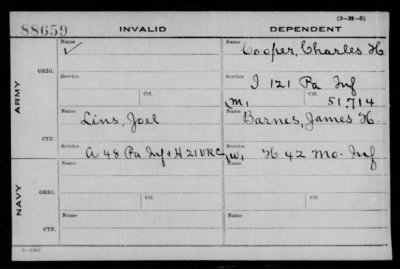 (3-H-5)
88659 INVALID DEPENDENT
Name Name
✓ Cooper, Charles H
ARMY
ORIG. Service Service
I 121 Pa Inf
Ctf. M. Ctf. 51,714
Name Name
Lins, Joel Barnes, James H.
CTF. Service Service
A 48 Pa Inf + H 21 VRC W. H 42 Mo. Inf
NAVY
Name Name
ORIG. Service Service
Ctf. Ctf.
Name Name
CTF. Service Service